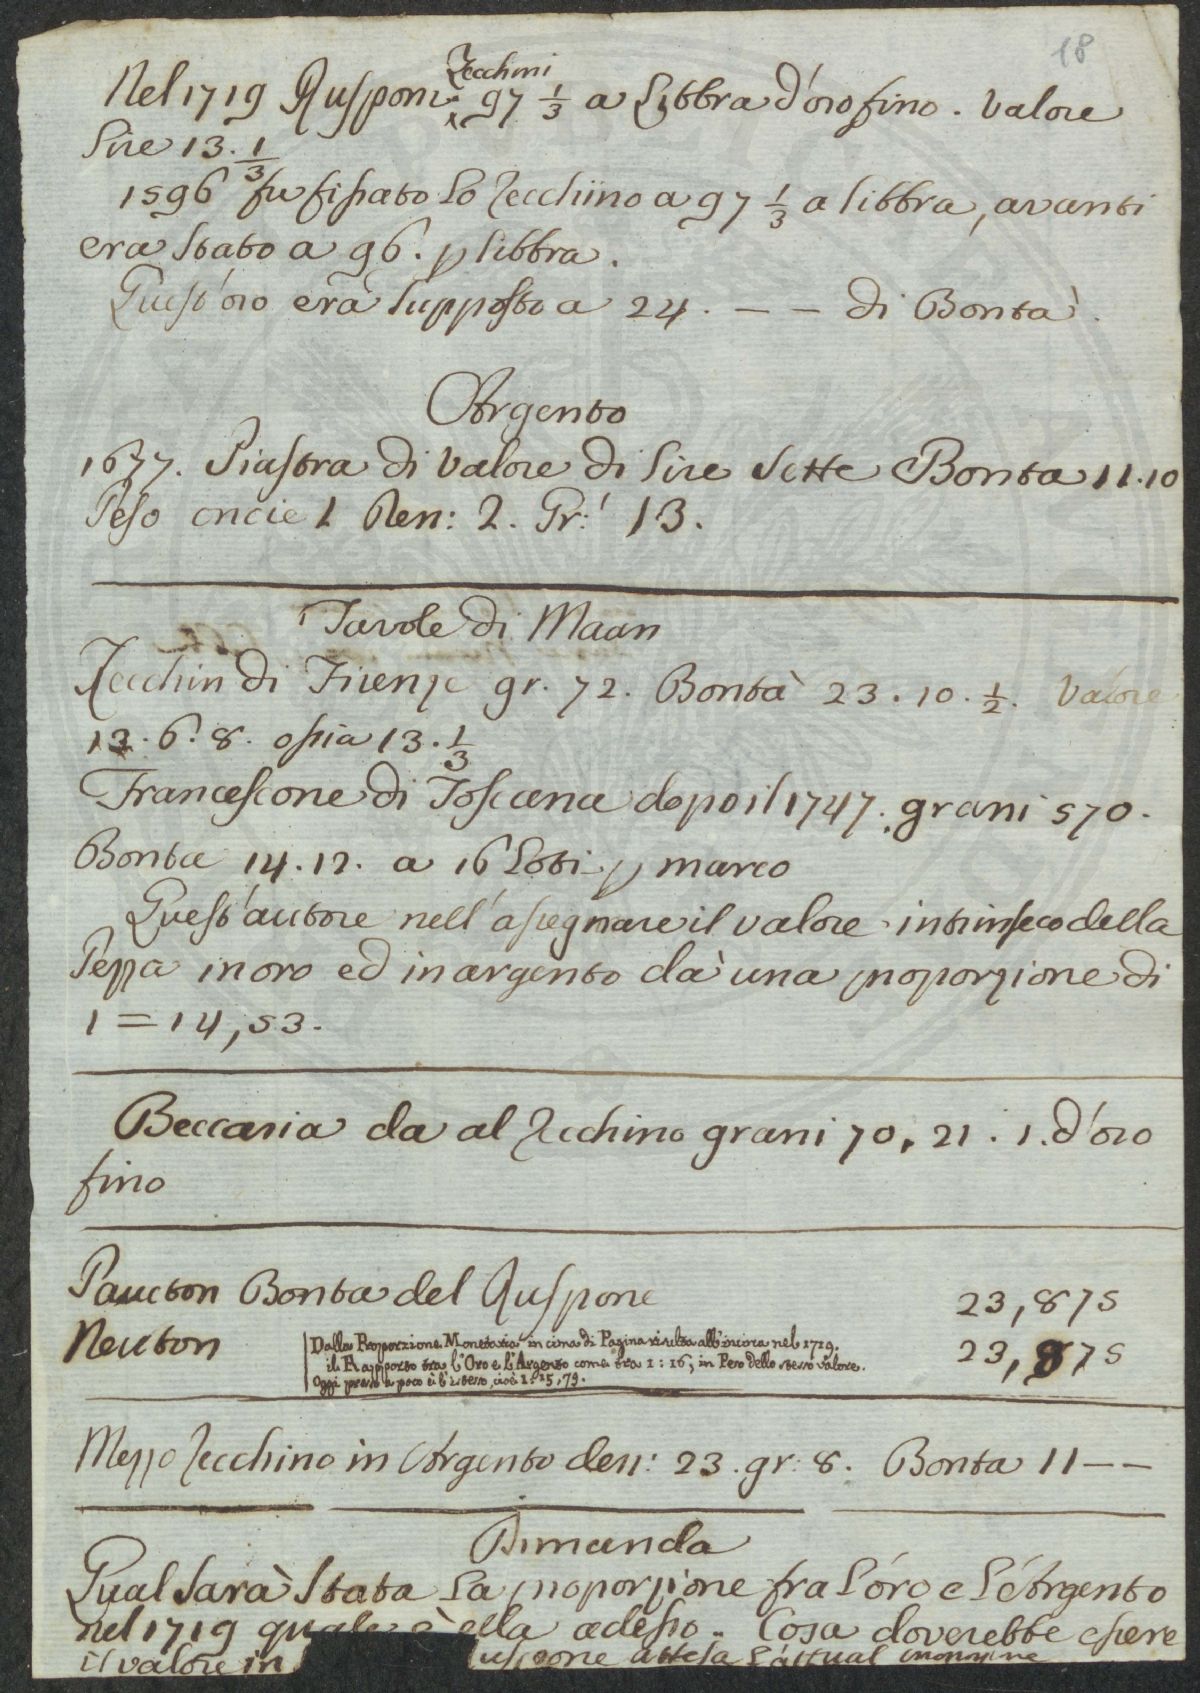 18
Zecchini
Nel 1719 Rusponi 97 1/3 a Libbra d'oro fino. Valore
Lire 13. 1/3
1596 fu fissato Lo Zecchino a 97 1/3 a libbra, avanti
era Stato a 96. p libbra.
Quest'oro era Suppposto a 24. — — di Bontà.
Argento
1677. Piastra di Valore di Lire Sette Bonta 11.10
Peso oncie 1 Den: 2. Gr: 13.
Tavole di Maan
Zecchin di Firenze gr. 72. Bontà 23.10. 1/2. Valore
13.6.8. ossia 13. 1/3
Francescone di Toscana dopo il 1747. grani 570.
Bonta 14.12. a 16 Loti p marco
Quest'autore nell'assegnare il valore intrinseco della
Pezza in oro ed in argento dà una proporzione di
1 = 14,53.
Beccaria da al Zecchino grani 70, 21. 1. d'oro
fino
Paucton Bonta del Ruspone 23,875
Neuton 23,875
Dalla Proporzione Monetaria in cima di Pagina risulta all'incirca nel 1719.
il Rapporto tra l'Oro e l'Argento come tra 1 : 16; in Peso dello stesso valore.
Oggi presso a poco è l'istesso, cioè 1:15,79.
Mezzo Zecchino in Argento den: 23. gr: 8. Bonta 11 — —
Dimanda
Qual Sarà Stata La proporzione fra L'oro e L'Argento
nel 1719 quale è ella adesso. Cosa doverebbe essere
il valore in uspone attesa L'attual